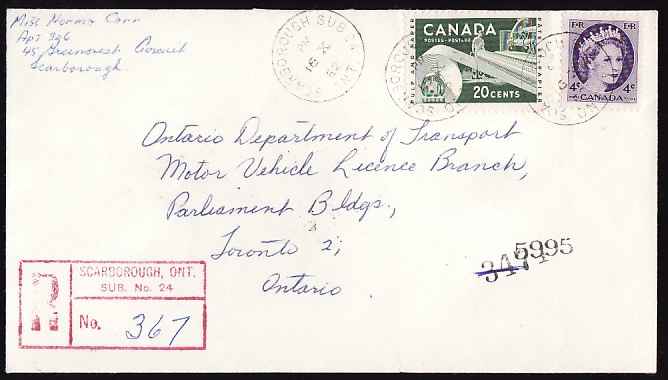 Miss Norma Carr
Apt 326
45 Greencrest Circuit
Scarborough.
SCARBOROUGH SUB 24
PM
16 X
62
ONT.
CANADA
POSTES-POSTAGE
PULP AND PAPER
PAPIER
20 CENTS
E II R
E II R
4¢ CANADA 4¢
Ontario Department of Transport
Motor Vehicle Licence Branch,
Parliament Bldgs.,
Toronto 2,
Ontario
5995
R
SCARBOROUGH, ONT.
SUB. No. 24
No. 367